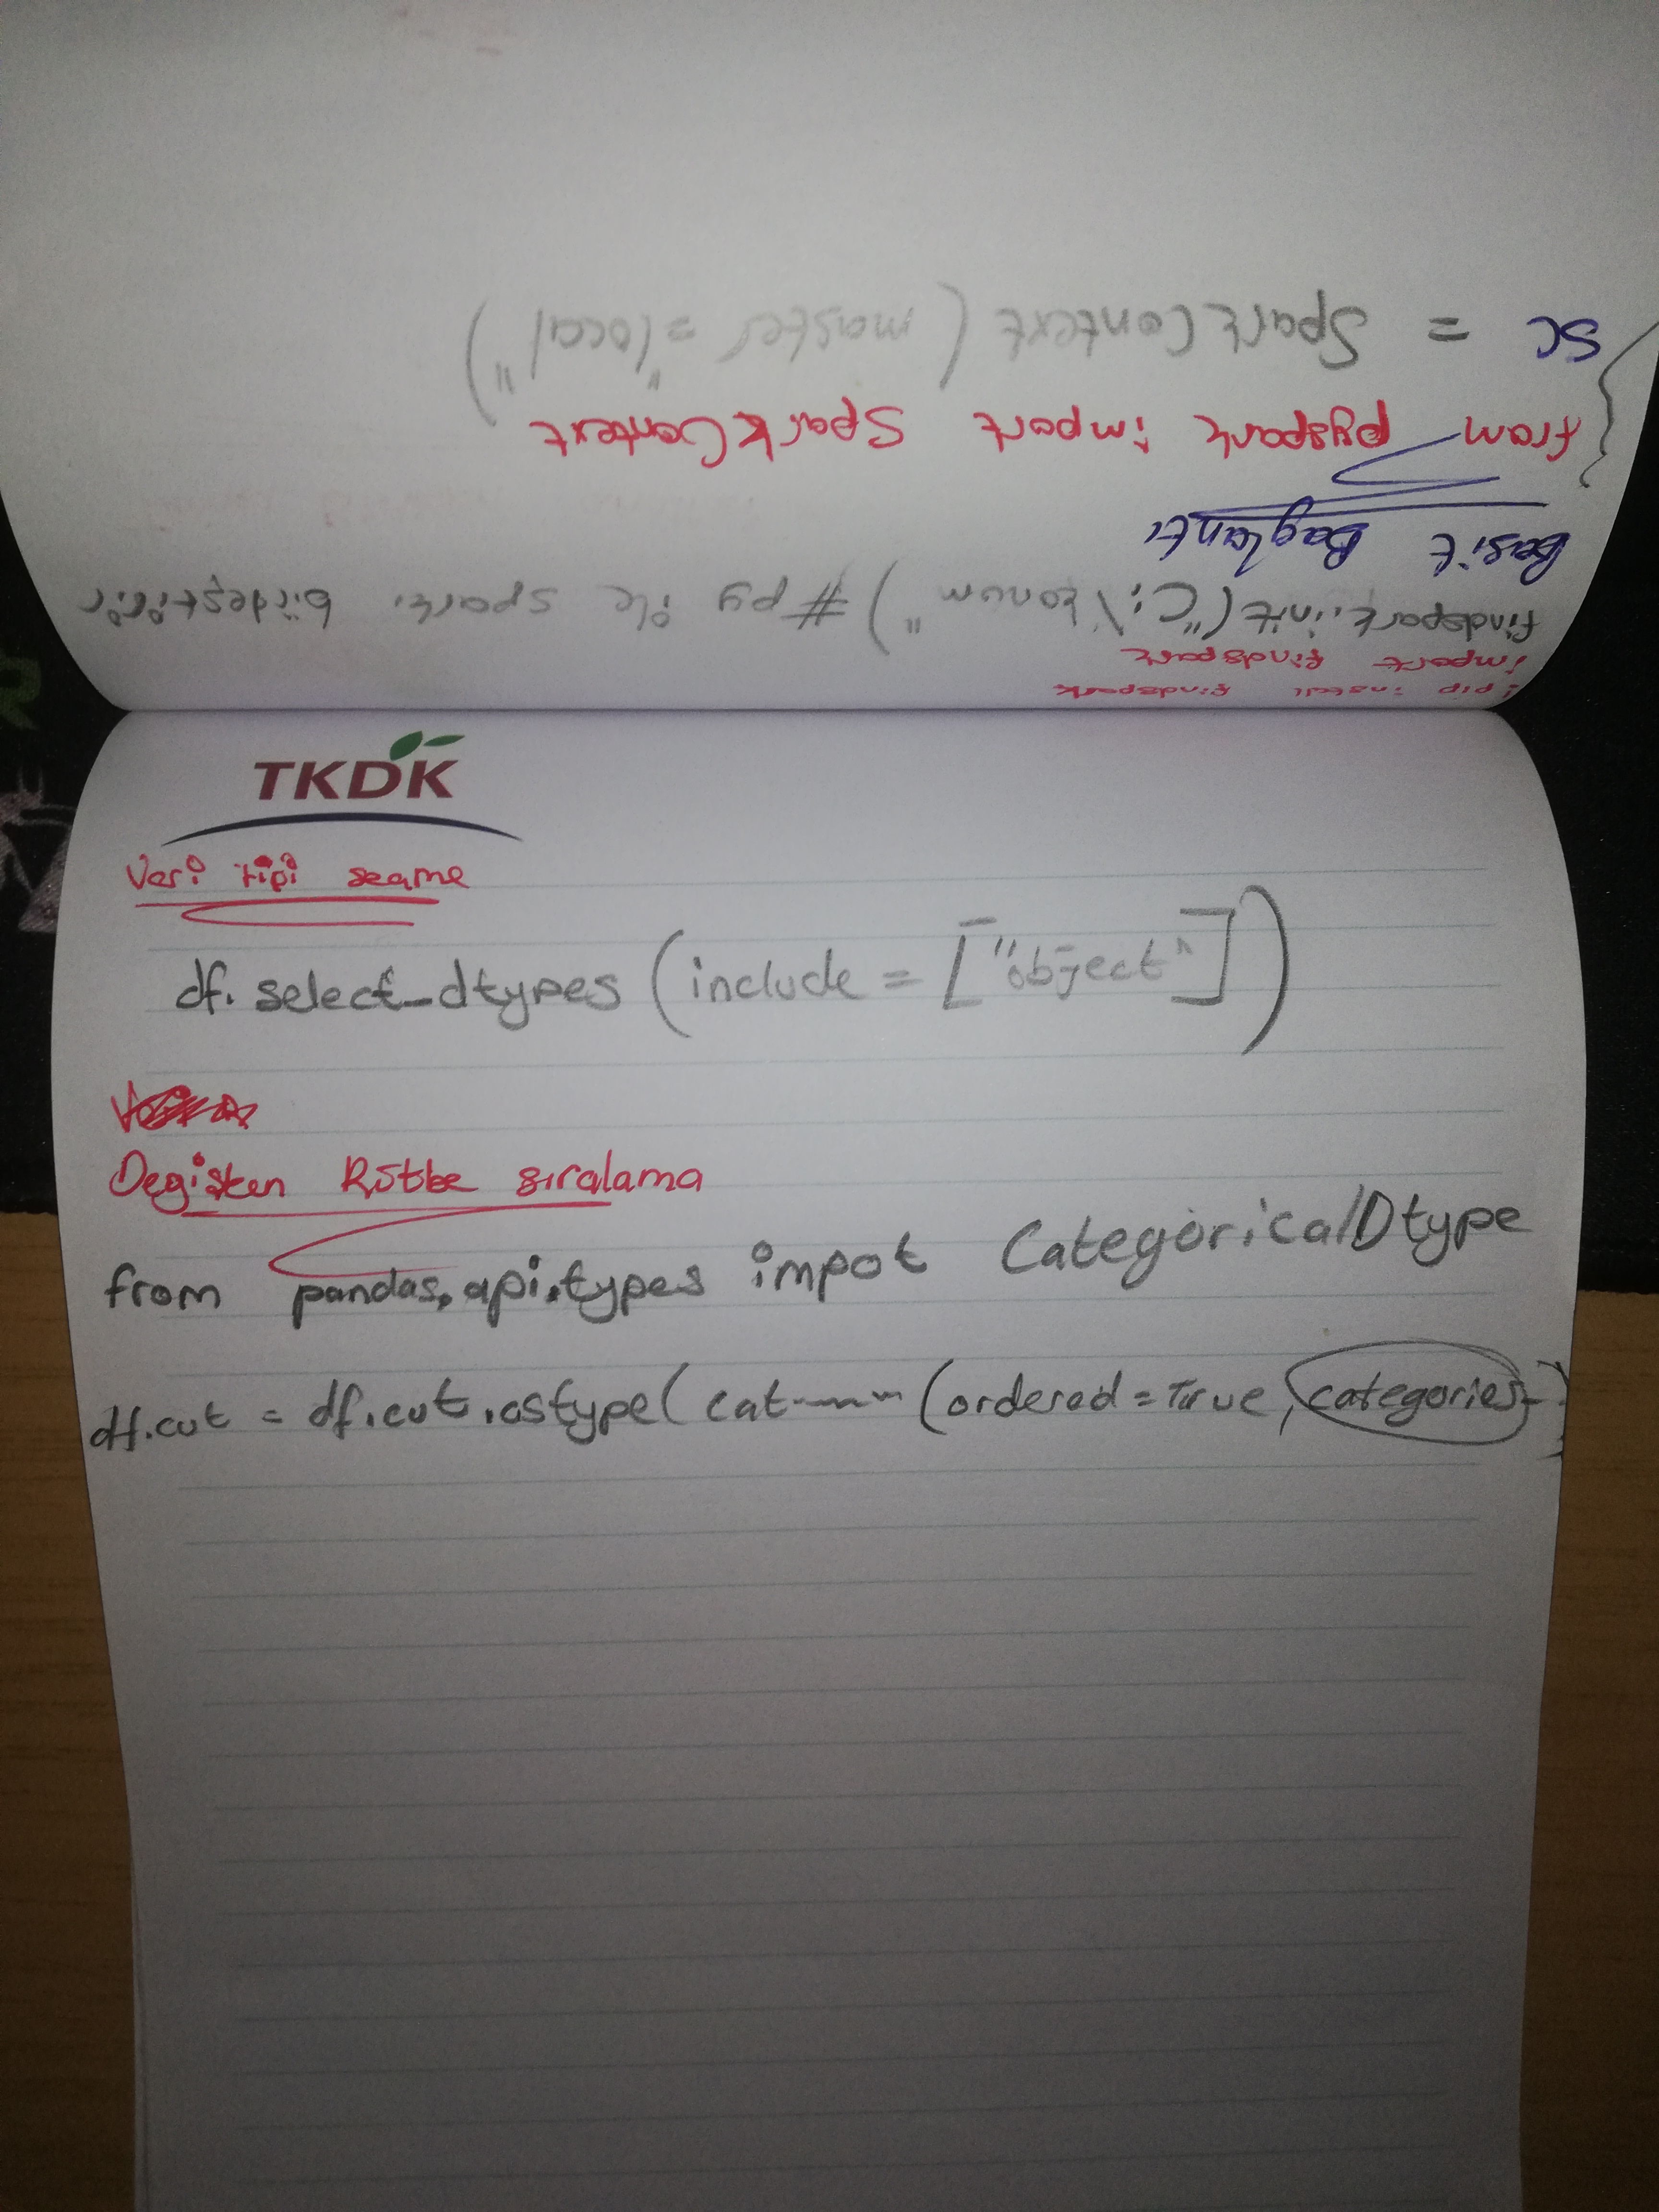 !pip install findspark
import findspark
findspark.init("C:\konum") #py ile sparkı birleştirir
Basit Baglantı
from pyspark import SparkContext
sc = SparkContext (master = "local")
TKDK
Veri tipi seçme
df.select_dtypes (include = ["object"])
Degisken Rütbe sıralama
from pandas.api.types impot CategoricalDtype
df.cut = df.cut.astype( cat (ordered = True, categories